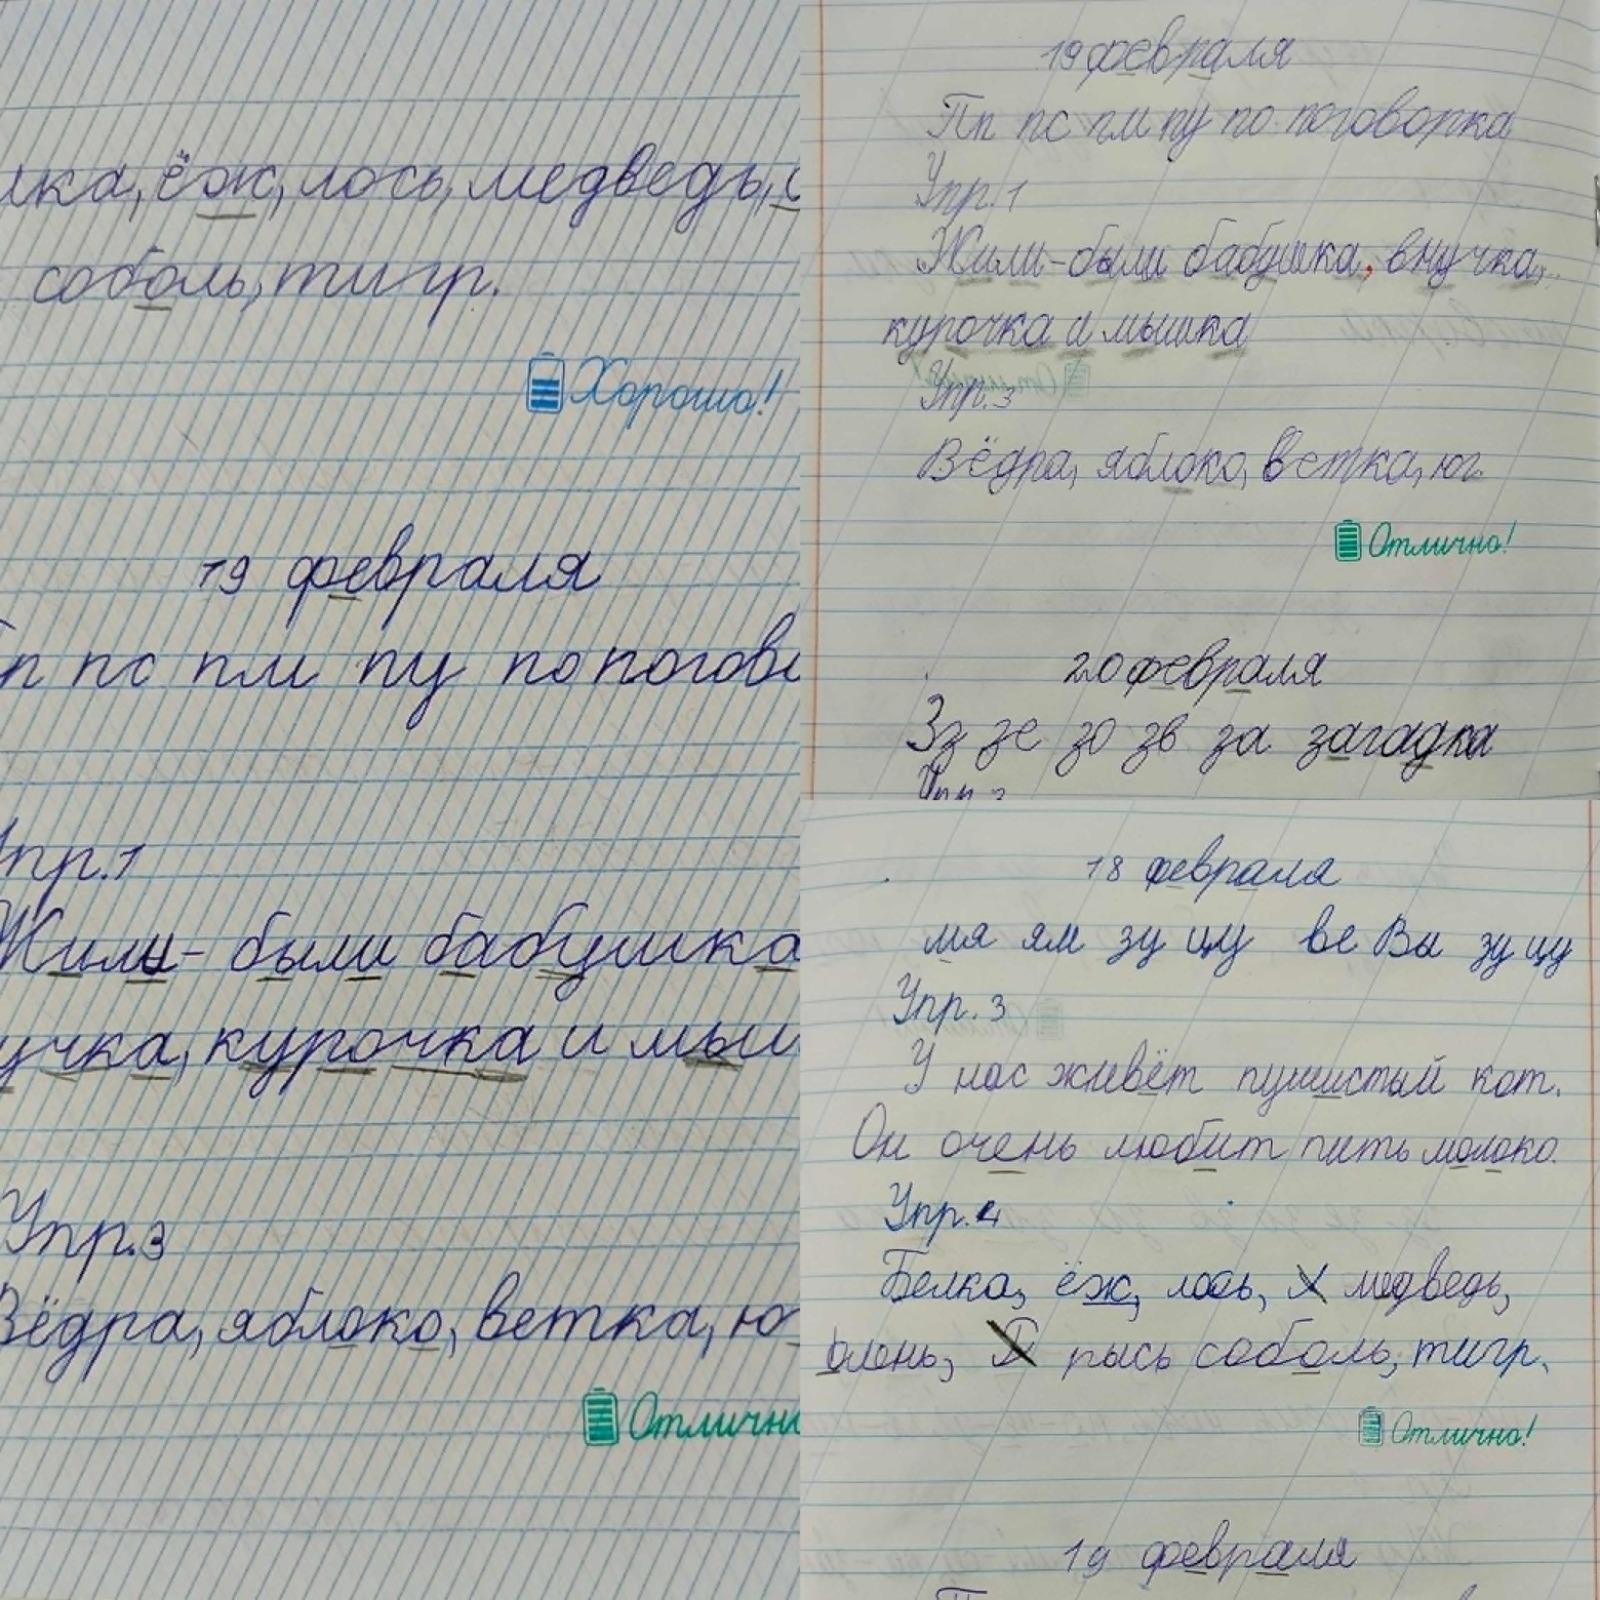 лка, ёж, лось, медведь,
соболь, тигр.
Хорошо!
19 февраля
п пс пм пу по погов
пр.1
Жили-были бабушка
учка, курочка и мыш
Упр.3
Вёдра, яблоко, ветка, ю
Отличн
19 февраля
Пп пс пм пу по поговорка
Упр.1
Жили-были бабушка, внучка,
курочка и мышка
Упр.3
Вёдра, яблоко, ветка, юг.
Отлично!
20 февраля
Зз зе зо зв за загадка
18 февраля
мя ям зу цу ве Ви зу цу
Упр. 3
У нас живёт пушистый кот.
Он очень любит пить молоко.
Упр.4
Белка, ёж, лось, медведь,
олень, рысь соболь, тигр.
Отлично!
19 февраля